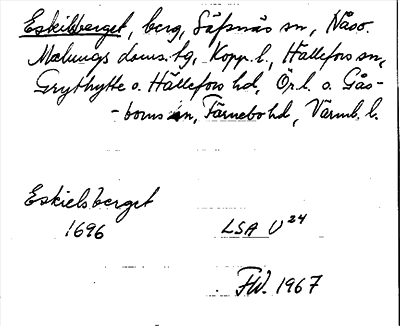 Eskilsberget, berg, Säfsnäs sn, Näso.
Malungs doms. tg, Kopp. l., Hällefors sn,
Grythytte o. Hällefors hd, Ör. l. o. Gås-
-borns sn, Färnebo hd, Värml. l.
Eskielsberget
1696 LSA U 24
FW. 1967